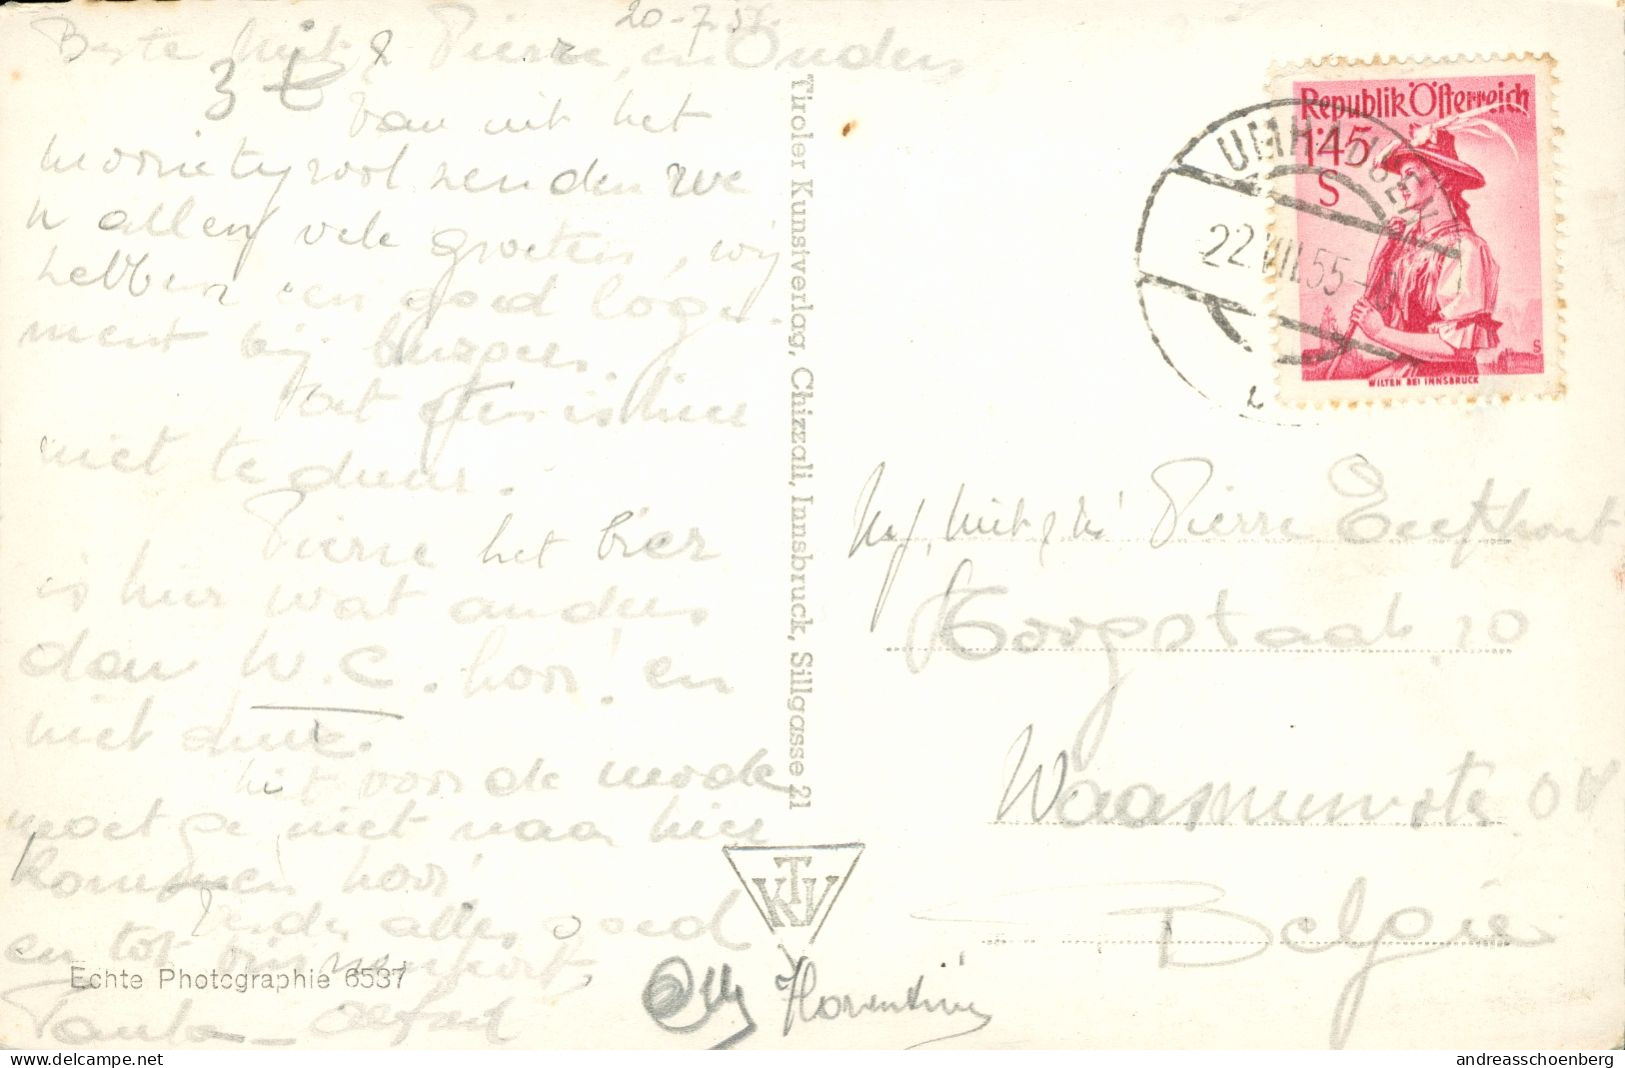 20-7-55
Beste Mit & Pierre, en Ouders
3 t
Van uit het
mooie tyrool zenden we
u allen vele groeten, wij
hebben een goed loge-
ment bij burgers.
Tot eten is hier
niet te duur.
Pierre het bier
is hier wat anders
dan W.C. hoor! en
niet duur.
Mit voor de mode
moet ge niet naar hier
kommen hoor!
Verder alles goed
en tot binnenkort,
Paula - Alfred
Elly Florentine
Echte Photographie 6537
Tiroler Kunstverlag, Chizzali, Innsbruck, Sillgasse 21
KTV
Republik Österreich
1·45
S
WILTEN BEI INNSBRUCK
UMHAUSEN
22.VII.55
Mit & Pierre
Hoogstraat 10
Waasmunster OV
Belgie
andreasschoenberg